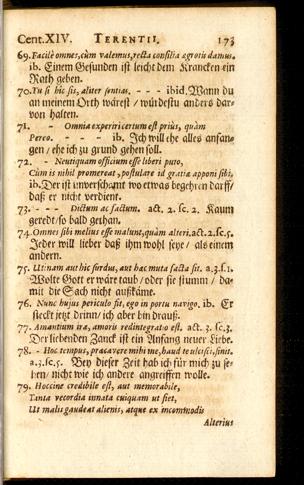 Cent. XIV. TERENTII. 173
69. Facilè omnes, cùm valemus, recta consilia ægrotis damus.
ib. Einem Gesunden ist leicht dem Krancken ein
Rath geben.
70. Tu si hic sis, aliter sentias. - - - ibid. Wann du
an meinem Orth wärest / würdestu anders dar-
von halten.
71. - Omnia experiri certum est priùs, quàm
Pereo. - - - ib. Jch will ehe alles anfan-
gen / ehe ich zu grund gehen soll.
72. - Neutiquam officium esse liberi puto,
Cùm is nihil promereat, postulare id gratiæ apponi sibi,
ib. Der ist unverschamt wo etwas begehren darff /
daß er nicht verdient.
73. - - - Dictum ac factum. act. 2. sc. 2. Kaum
geredt / so bald gethan.
74. Omnes sibi melius esse malunt, quàm alteri. act. 2. sc. 5.
Jeder will lieber daß ihm wohl seye / als einem
andern.
75. Utinam aut hic surdus, aut hæc muta facta sit. a. 3. s. 1.
Wolte Gott er wäre taub / oder sie stumm / da-
mit die Sach nicht außkäme.
76. Nunc hujus periculo fit, ego in portu navigo. ib. Er
steckt jetzt drinn / ich aber bin drauß.
77. Amantium iræ, amoris redintegratio est. act. 3. sc. 3.
Der liebenden Zanck ist ein Anfang neuer Liebe.
78. - Hoc tempus, præcavere mihi me, haud te ulcisci, sinit.
a. 3. sc. 5. Bey dieser Zeit hab ich für mich zu se-
hen / nicht wie ich andere angreiffen wolle.
79. Hoccine credibile est, aut memorabile,
Tanta vecordia innata cuiquam ut siet,
Ut malis gaudeat alienis, atque ex incommodis
Alterius